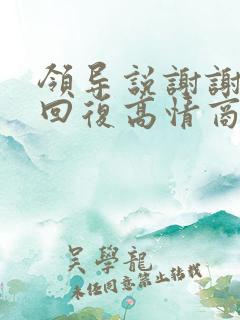 領导説謝謝
回復高情商
吴學龍
未经同意禁止转载